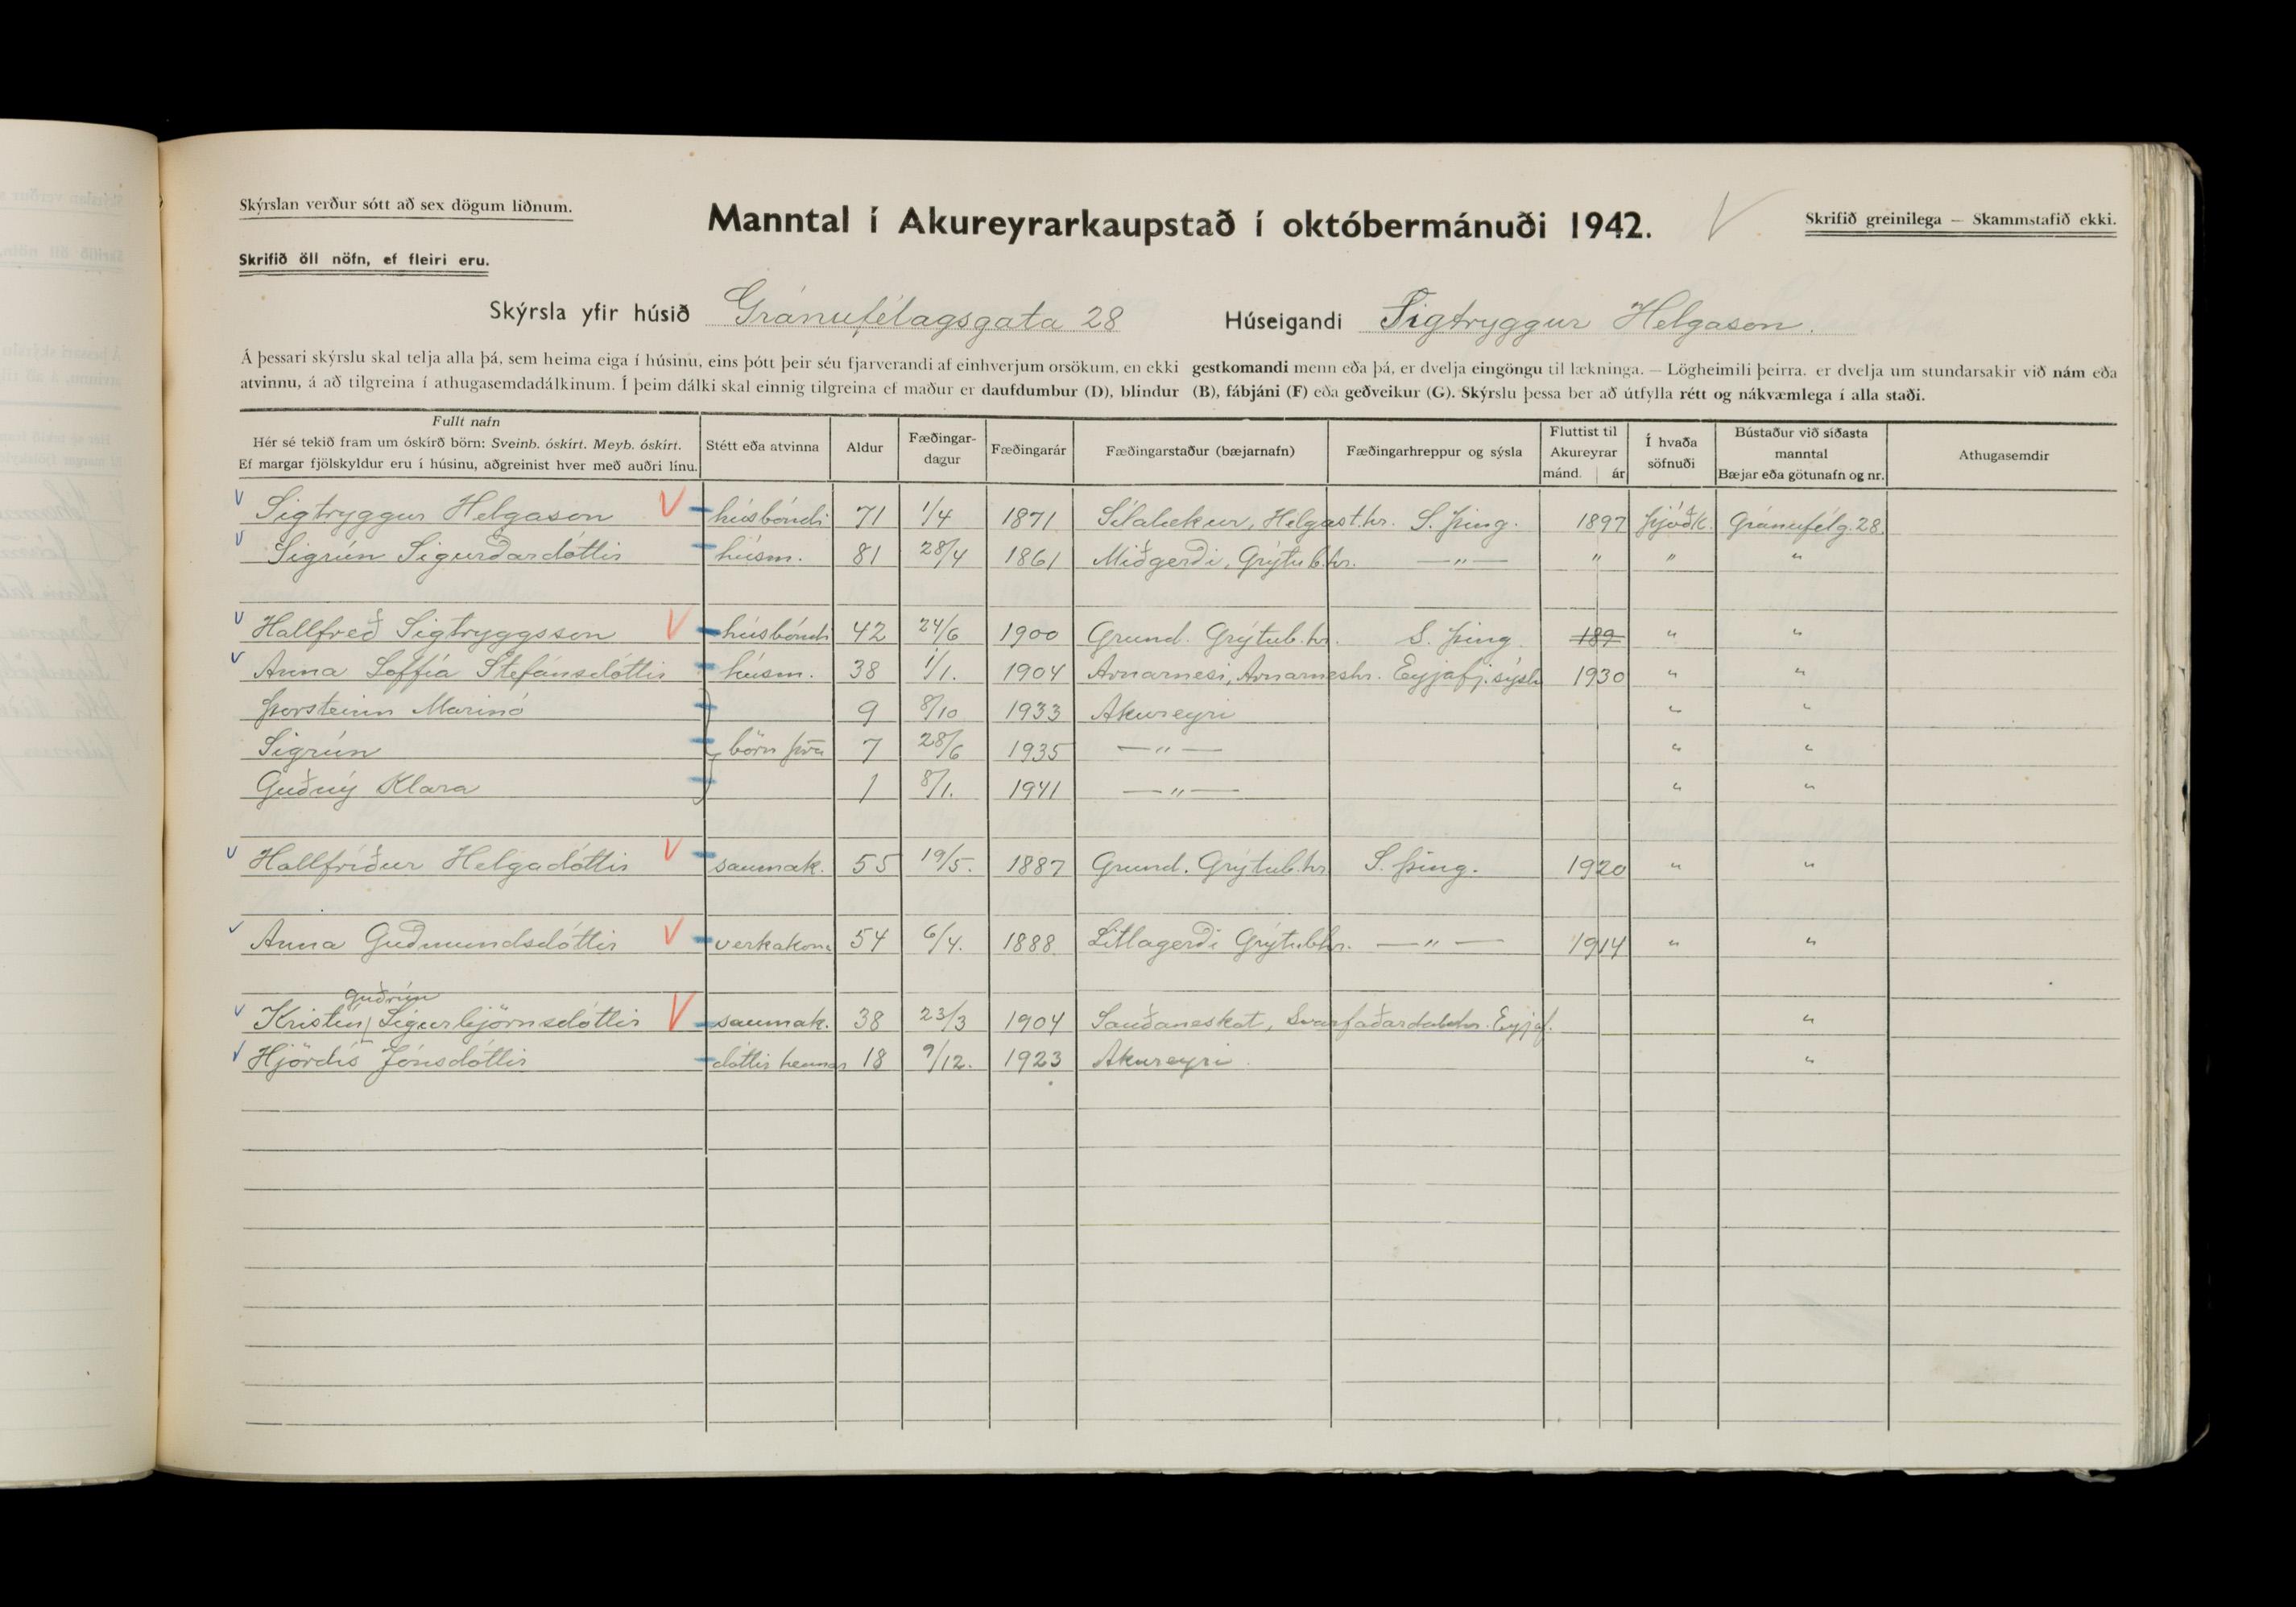 Skýrslan verður sótt að sex dögum liðnum.
Manntal í Akureyrarkaupstað í októbermánuði 1942.
Skrifið greinilega — Skammstafið ekki.
Skrifið öll nöfn, ef fleiri eru.
Skýrsla yfir húsið Gránufélagsgata 28 Húseigandi Sigtryggur Helgason.
Á þessari skýrslu skal telja alla þá, sem heima eiga í húsinu, eins þótt þeir séu fjarverandi af einhverjum orsökum, en ekki gestkomandi menn eða þá, er dvelja eingöngu til lækninga. — Lögheimili þeirra. er dvelja um stundarsakir við nám eða
atvinnu, á að tilgreina í athugasemdadálkinum. Í þeim dálki skal einnig tilgreina ef maður er daufdumbur (D), blindur (B), fábjáni (F) eða geðveikur (G). Skýrslu þessa ber að útfylla rétt og nákvæmlega í alla staði.
Fullt nafn
Hér sé tekið fram um óskírð börn: Sveinb. óskírt. Meyb. óskírt.
Ef margar fjölskyldur eru í húsinu, aðgreinist hver með auðri línu.
Stétt eða atvinna
Aldur
Fæðingar-
dagur
Fæðingarár
Fæðingarstaður (bæjarnafn)
Fæðingarhreppur og sýsla
Fluttist til
Akureyrar
mánd. ár
Í hvaða
söfnuði
Bústaður við síðasta
manntal
Bæjar eða götunafn og nr.
Athugasemdir
V Sigtryggur Helgason V húsbóndi 71 1/4 1871 Sílalækur, Helgast.hr. S. Þing. 1897 Þjóðk. Gránufélg. 28.
V Sigrún Sigurðardóttir húsm. 81 28/4 1861 Miðgerði, Grýtub.hr. —"— " " "
V Hallfreð Sigtryggsson V húsbóndi 42 24/6 1900 Grund. Grýtub.hr. S. Þing. 189 " "
V Anna Soffía Stefánsdóttir húsm. 38 1/1. 1904 Arnarnesi, Arnarneshr. Eyjafj.sýslu 1930 " "
Þorsteinn Marinó 9 8/10 1933 Akureyri " "
Sigrún börn þra 7 28/6 1935 —"— " "
Guðný Klara 1 8/1. 1941 —"— " "
V Hallfríður Helgadóttir V saumak. 55 19/5. 1887 Grund. Grýtub.hr S. Þing. 1920 " "
V Anna Guðmundsdóttir V verkakona 54 6/4. 1888 Litlagerði Grýtubhr. —"— 1914 " "
Guðrún
V Kristín Sigurbjörnsdóttir V saumak. 38 23/3 1904 Sauðaneskot, Svarfaðardalshr. Eyjaf. "
V Hjördís Jónsdóttir dóttir hennar 18 9/12. 1923 Akureyri. "